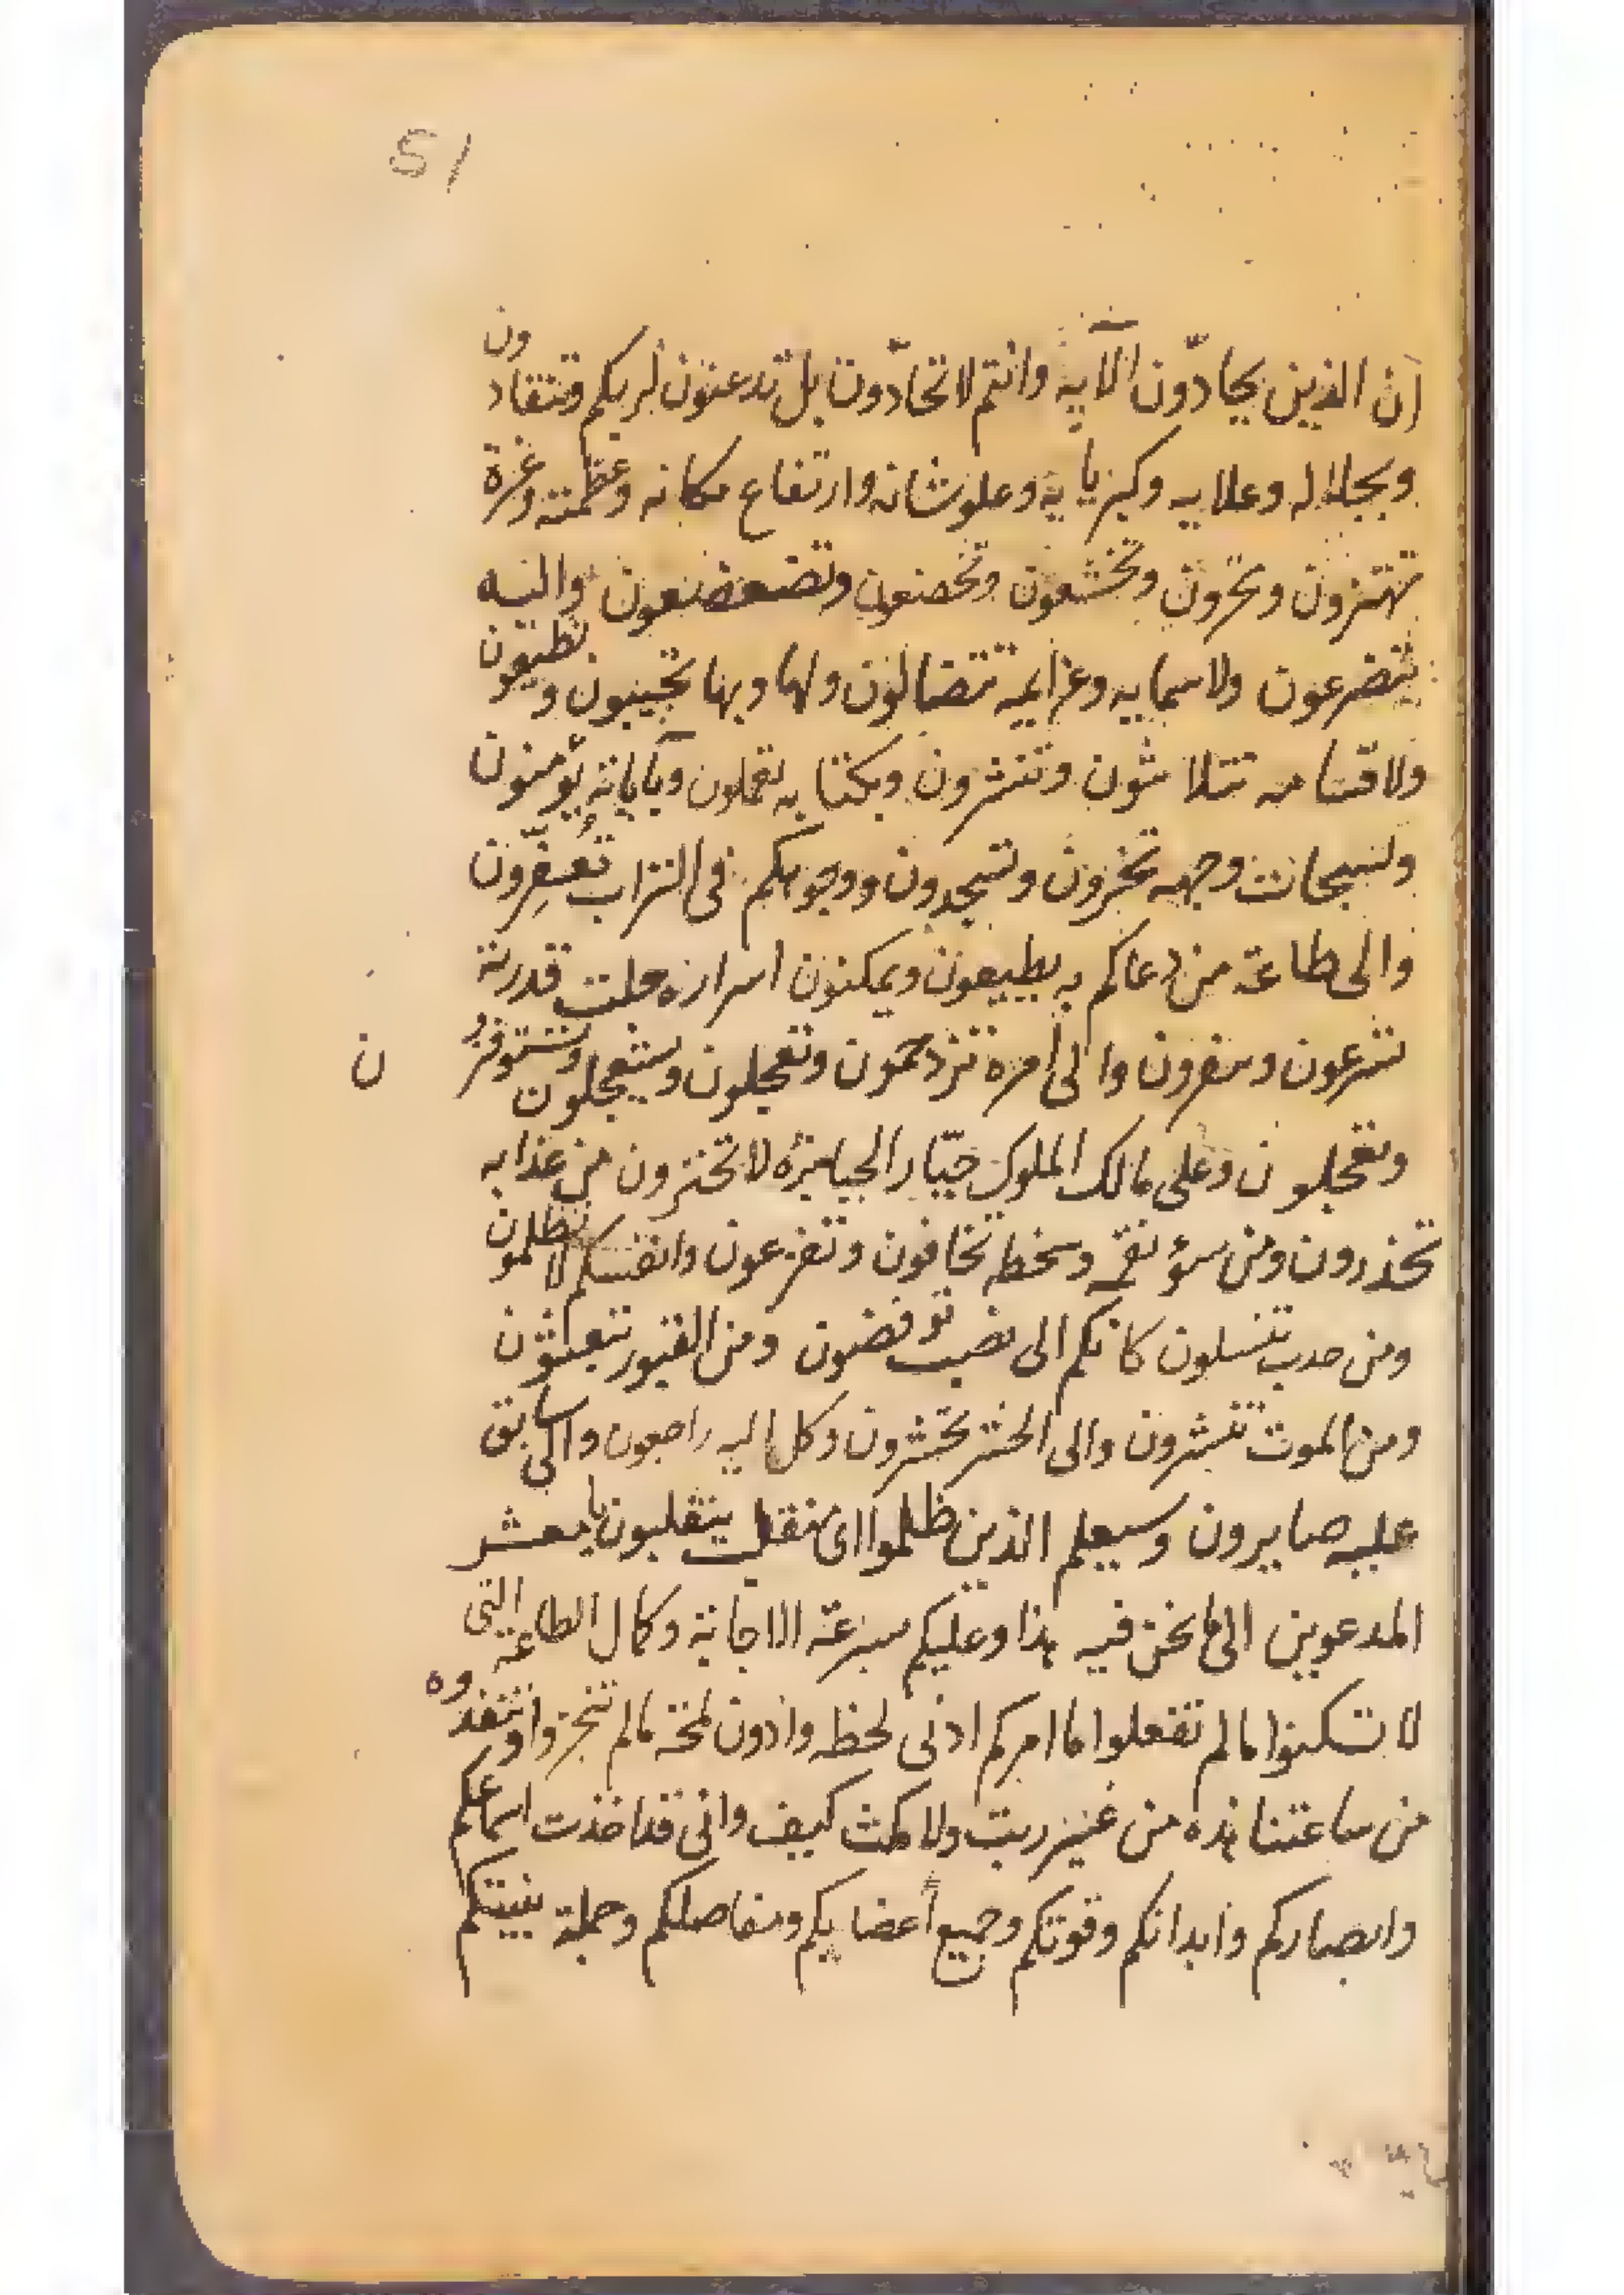 51
ان الذين يحادّون الآيه وانتم لا تحادّون بل تدعنون لربكم وتنقادون
وبجلاله وعلايه وكبريايه وعلو شانه وارتفاع مكانه وعظمته وعزة
تهتزون وتخرون وتخشعون وتخضعون وتضعضعون واليه
تتضرعون ولاسمايه وعزايمه تتضالون ولها وبها تجيبون وتطيعون
ولاقسامه تتلاشون وتنشرون وبكتابه تعملون وبآياته يؤمنون
ولسبحات وجهه تخرون وتسجدون ووجوهكم فى التراب تعفّرون
والى طاعة من دعاكم به يطيعون ويمكنون اسراره جلت قدرته
تسرعون وتنفرون والى امره تزدحمون وتعجلون وتستعجلون وتستوفزون
وتعجلون وعلى مالك الملوك جبّار الجبابرة لا تجترون من عذابه
تحذرون ومن سؤ نقمه وسخطه تخافون وتفزعون وانفسكم لا تظلمون
ومن حدب تنسلون كانكم الى نصب توفضون ومن القبور تبعثون
ومن الموت تنشرون والى الحشر تحشرون وكل اليه راجعون والى سابق
عليه صايرون وسيعلم الذين ظلموا اى منقلب ينقلبون يا معشر
المدعوين الى ما نحن فيه هذا وعليكم بسرعة الاجابة وكمال الطاعة التى
لا تسكنوا ما لم تفعلوا ما امركم ادنى لحظه وادون لمحة ما لم تنجزوا وتنفذوه
من ساعتنا هذه من غير ريت ولا مكث كيف وانى قد اخذت اسماعكم
وابصاركم وابدانكم وقوتكم وجميع أعضايكم ومفاصلكم وجملة بنيتكم